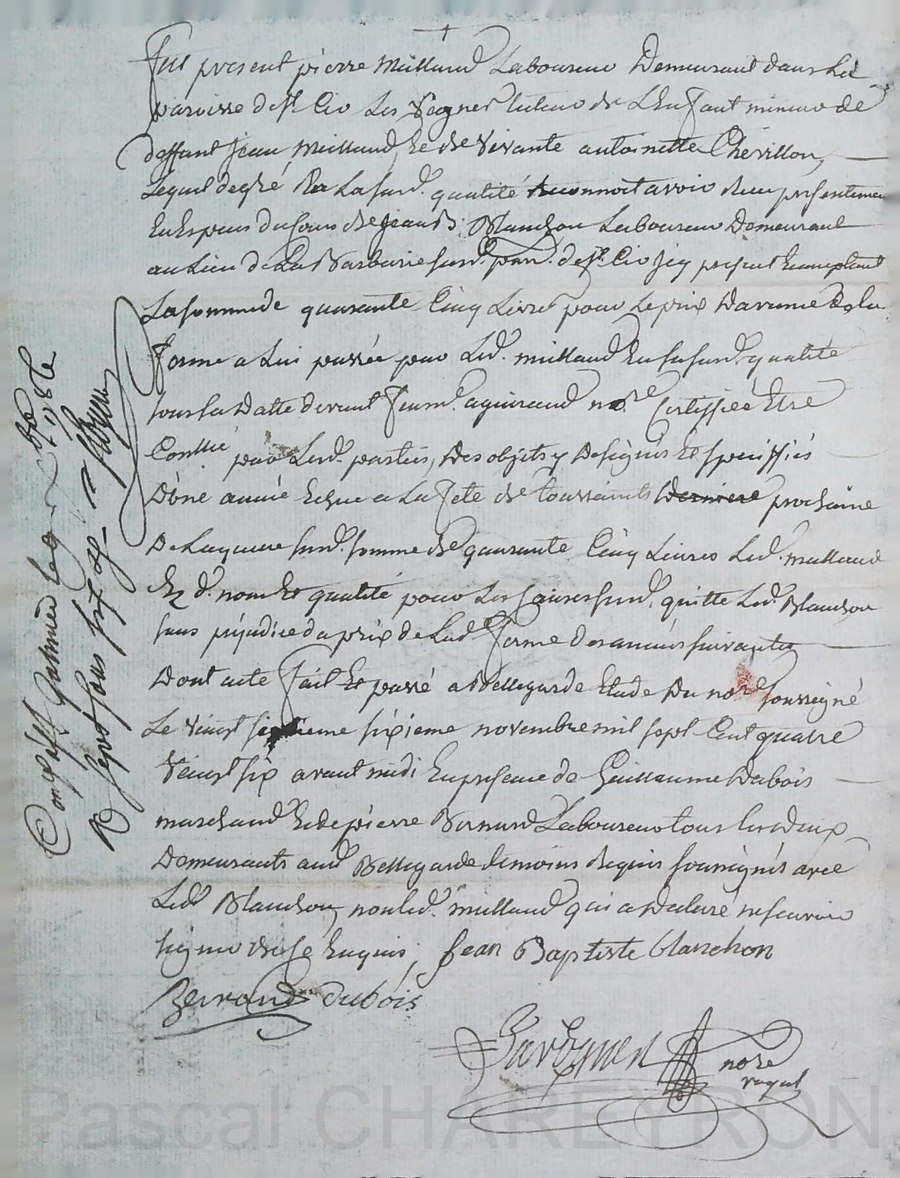 Fut present pierre Milland Laboureur Demeurant dans la
paroisse de St Cir Les Vignes tuteur de L'enfant mineur de
deffunt Jean Milland, et de vivante antoinette Chevillon,
Lequel de gré En La susd. qualité reconnoit avoir reçu presentement
En Especes du Cours de Jean B. Blanchon Laboureur Demeurant
au Lieu de La Barbarie susd. parr. de St. Cir icy present Et acceptant
La somme de quarante Cinq Livres pour Le prix D'a de la
ferme a Lui passée par Led. milland En sa susd. qualité
sous la Datte devant no.re Certiffiée Etre
par Lesd. parties, Des objets y Designés Et speciffiés
D'une année Echue a La fete de toussaints derniere prochaine
De Laquelle susd. somme de quarante Cinq Livres Led. milland
Es d. nom Et qualité pour Les susd. quitte Led. Blanchon
sans prejudice du prix de Lad. ferme des années suivantes
Dont acte fait Et passé a Bellegarde Etude Du no.re soussigné
Le vingt sixieme novembre mil sept Cent quatre
vingt six avant midi En presence de Guillaume Dubois
marchand Et de pierre Bernard Laboureur tous les deux
Demeurants aud. Bellegarde temoins Requis soussignés avec
Led. Blanchon, non led. milland qui a Declaré ne sçavoir
signer de ce Enquis, Jean Baptiste blanchon
dubois
no.re
royal
Pascal CHAREYRON